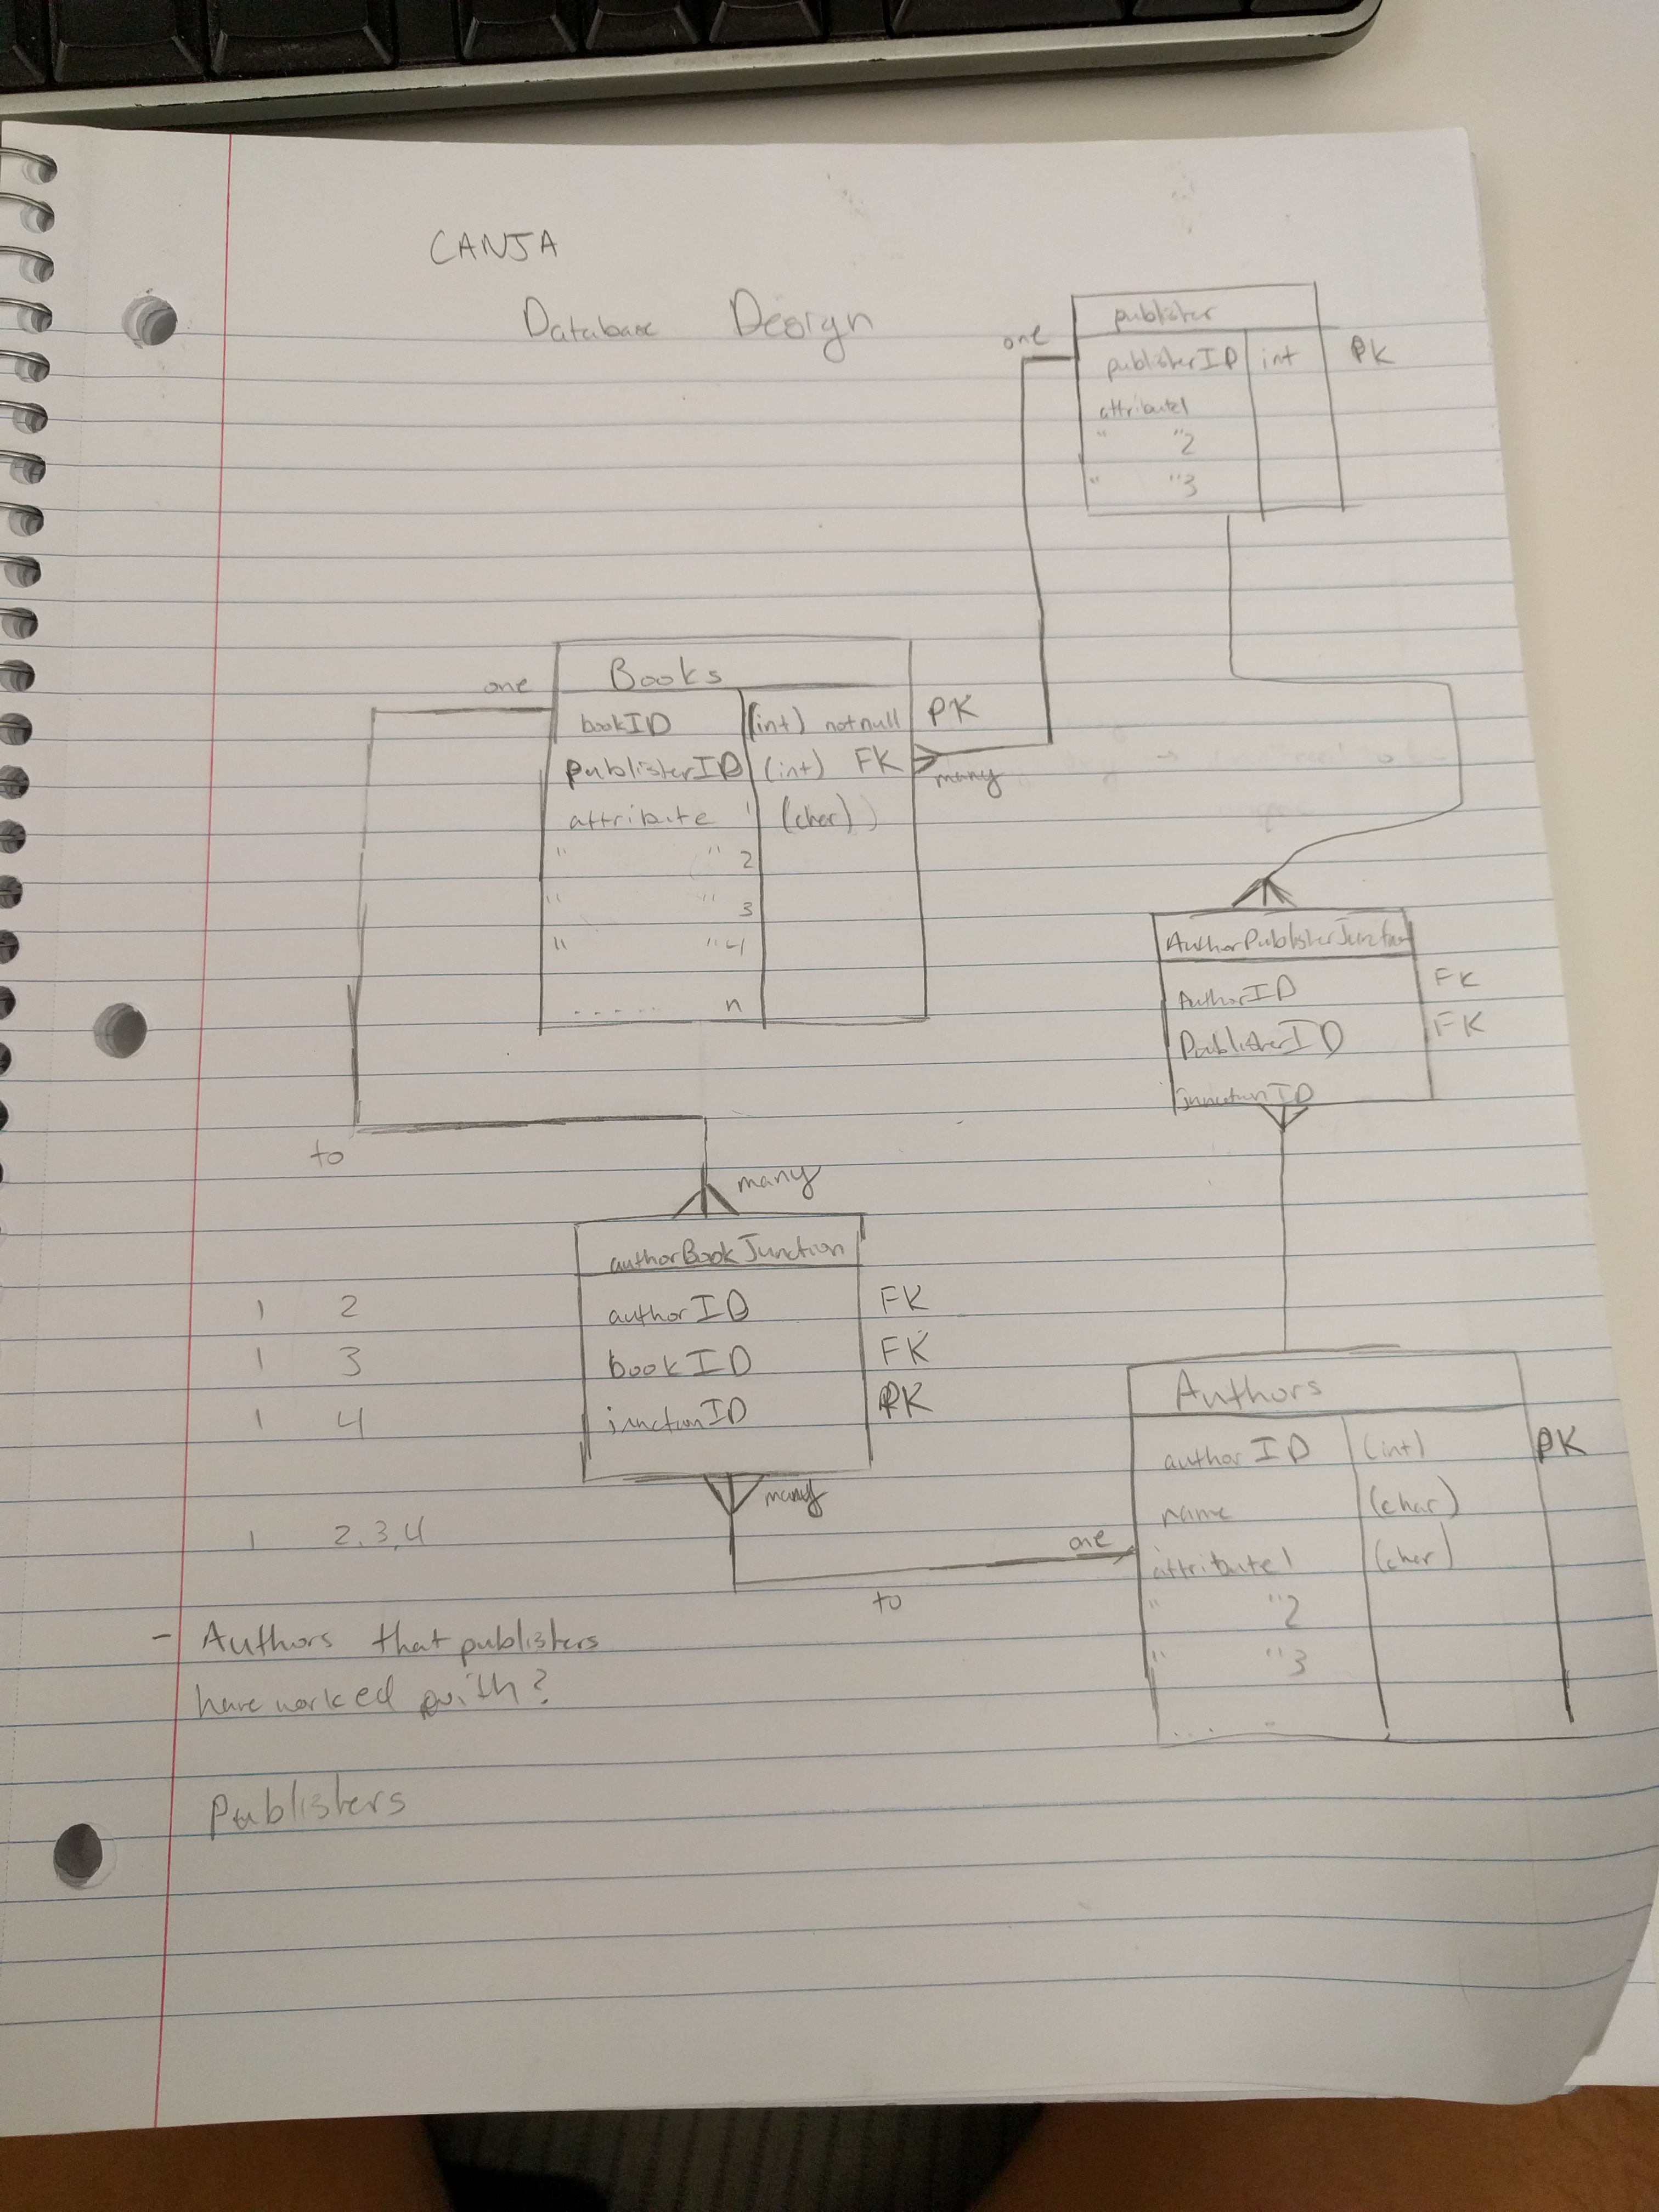 CANJA
Database Design
publister
one
publisterID int PK
attribute1
" "2
" "3
Books
one
bookID (int) not null PK
publisterID (int) FK
many
attribute 1 (char)
" " 2
" " 3
" " 4
..... n
AuthorPublisterJunction
AuthorID FK
PublisterID FK
junctionID
to
many
authorBookJunction
authorID FK
bookID FK
junctionID PK
1 2
1 3
1 4
many
1 2,3,4
one
to
Authors
authorID (int) PK
name (char)
attribute1 (char)
" "2
" "3
... "
- Authors that publisters
have worked with?
Publisters